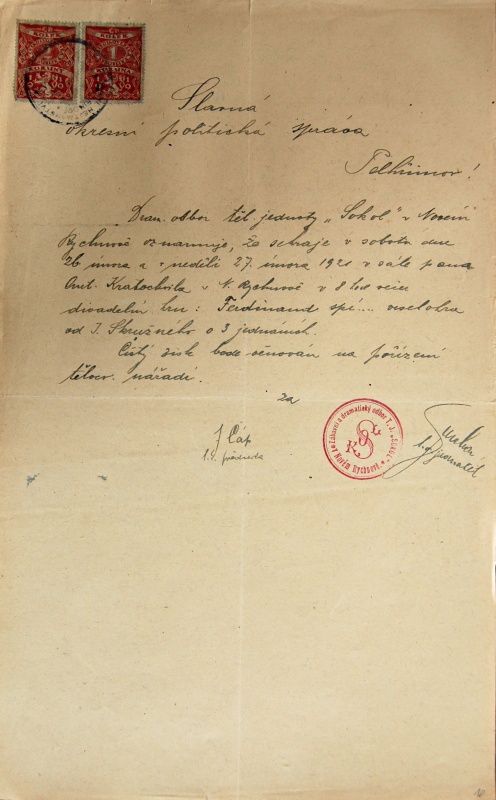 ČS
KOLEK
1
KORUNA
ČS
KOLEK
1
KORUNA
Slavná
okresní politická správa
Pelhřimov!
Dram. odbor těl. jednoty „Sokol" v Novém
Rychnově oznamuje, že sehraje v sobotu dne
26 února a v neděli 27. února 1921 v sále pana
Ant. Kratochvíla v N. Rychnově v 8 hod večer
divadelní hru: Ferdinand spí... veselohra
od J. Skružného o 3 jednáních.
Čistý zisk bude věnován na pořízení
tělocv. nářadí.
za
Zábavní a dramatický odbor T. J. „SOKOL" v Novém Rychnově.
J Čáp
t.č. předseda
t.č. jednatel